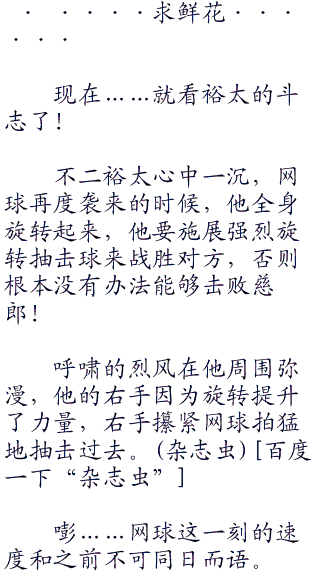 · ·····求鲜花···
···
现在……就看裕太的斗
志了!
不二裕太心中一沉,网
球再度袭来的时候,他全身
旋转起来,他要施展强烈旋
转抽击球来战胜对方,否则
根本没有办法能够击败慈
郎!
呼啸的烈风在他周围弥
漫,他的右手因为旋转提升
了力量,右手攥紧网球拍猛
地抽击过去。(杂志虫)[百度
一下“杂志虫”]
嘭……网球这一刻的速
度和之前不可同日而语。